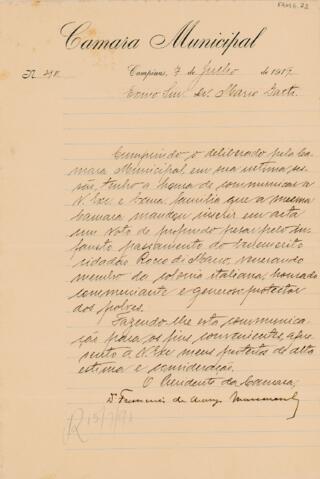 Camara Municipal
Campinas, 7 de Julho de 1917
Exmo Snr. Dr. Mario Gatti.
Cumprindo o deliberado pela Ca-
mara Municipal em sua ultima ses-
são, tenho a honra de communicar a
V. Exc. e Exma. familia que a mesma
Camara mandou inserir em acta
um voto de profundo pesar pelo in-
fausto passamento do benemerito
cidadão Rocco de Marco, venerando
membro da colonia italiana, honrado
commerciante e generoso protector
dos pobres.
Fazendo-lhe esta communica-
ção para os fins convenientes, apre-
sento a V. Exc. meus protestos de alta
estima e consideração.
O Presidente da Camara,
Dr. Francisco de Araujo Mascarenhas